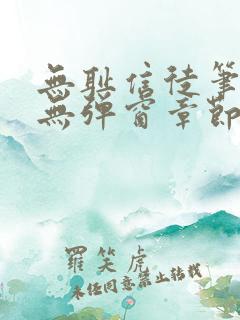 無恥信徒筆
無彈窗章節
羅笑虎
未经同意禁止转载